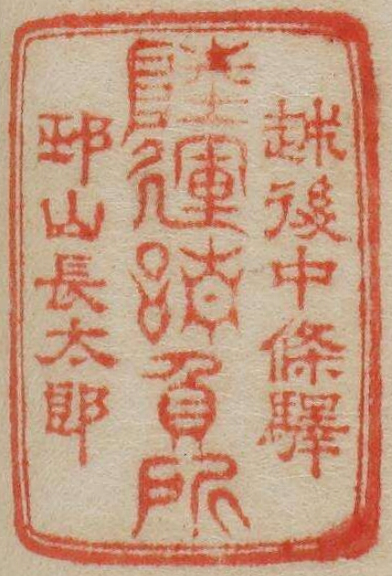 越後中條驛
陸運請負所
邨山長太郎